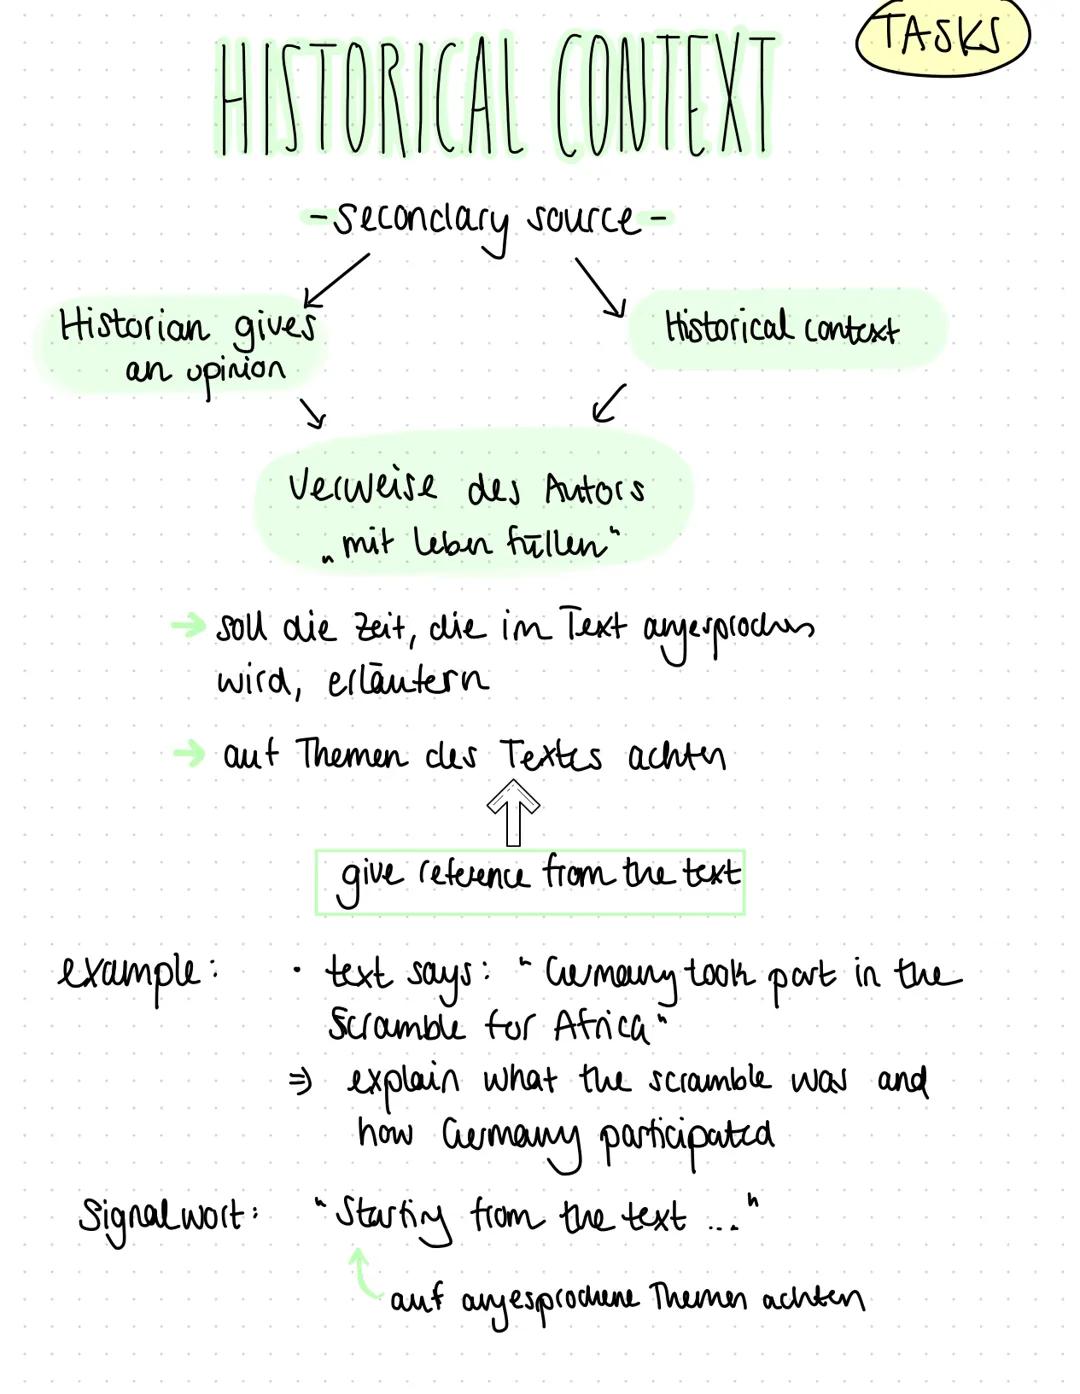 TASKS
HISTORICAL CONTEXT
- secondary source -
Historian gives
an opinion
Historical context
Verweise des Autors
„mit leben füllen“
→ soll die Zeit, die im Text angesprochen
wird, erläutern
→ auf Themen des Textes achten
give reference from the text
example: • text says: "Germany took part in the
Scramble for Africa"
⇒ explain what the scramble was and
how Germany participated
Signalwort: "Starting from the text ..."
auf angesprochene Themen achten